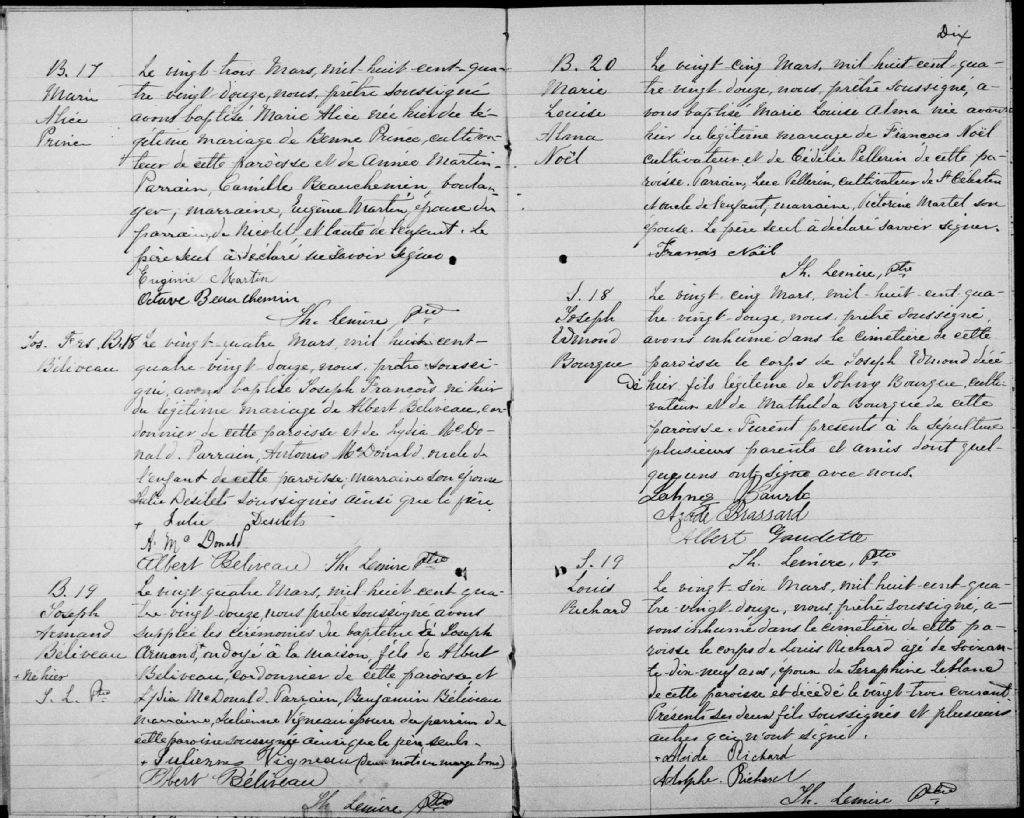 B. 17
Marie
Alice
Prince
Le vingt-trois Mars, mil-huit-cent-qua-
tre-vingt-douze, nous, prêtre soussigné
avons baptisé Marie Alice née hier du lé-
gitime mariage de Benne Prince, cultiva-
teur de cette paroisse et de Annee Martin-
Parrain, Camille Beauchemin, boulan-
ger; marraine, Eugénie Martin, épouse du
parrain, de Nicolet et tante de l'enfant. Le
père seul a déclaré ne savoir signer
Eugénie Martin
Octave Beauchemin
Th. Lemire, Ptre
Jos. Frs. B.18
Béliveau
Le vingt-quatre Mars, mil huit cent-
quatre-vingt-douze, nous, prêtre soussi-
gné, avons baptisé Joseph François né hier
du légitime mariage de Albert Béliveau, cor-
donnier de cette paroisse et de Lydia McDo-
nald. Parrain, Antonio McDonald, oncle de
l'enfant de cette paroisse; marraine son épouse
Julie Desilets soussignés ainsi que le père
+ Julie Desilets
A. Mc Donald
Albert Béliveau Th. Lemire Ptre
B. 19
Joseph
Armand
Béliveau
+ né hier
J. L. Ptre
Le vingt quatre Mars, mil huit cent qua-
tre-vingt-douze, nous prêtre soussigné avons
Supplée les cérémonies du baptême à Joseph
Armand + ondoyé à la maison, fils de Albert
Béliveau, cordonnier de cette paroisse et
Lydia McDonald. Parrain, Benjamin Béliveau
marraine, Julienne Vigneau épouse du parrain de
cette paroisse soussignée ainsi que le père, seuls-
+ Julienne Vigneau (deux mots en marge bons)
Albert Béliveau
Th. Lemire, Ptre
Dix
B. 20
Marie
Louise
Alma
Noël
Le vingt-cinq Mars, mil huit-cent-qua-
tre-vingt-douze, nous, prêtre soussigné, a-
vons baptisé Marie Louise Alma née avant
hier du légitime mariage de François Noël
cultivateur et de Cédélie Pellerin de cette pa-
roisse. Parrain, Luc Pellerin, cultivateur de St Célestin
et oncle de l'enfant; marraine, Victorine Martel son
épouse. Le père seul a déclaré savoir signer.
Francis Noël
Th. Lemire, Ptre
S. 18
Joseph
Edmond
Bourque
Le vingt-cinq Mars, mil-huit-cent-qua-
tre-vingt-douze, nous, prêtre soussigné,
avons inhumé dans le cimetière de cette
paroisse le corps de Joseph Edmond décé-
dé hier, fils légitime de Johnny Bourque, culti-
vateur et de Mathilda Bourque de cette
paroisse. Furent présents à la sépulture
plusieurs parents et amis dont quel-
ques uns ont signé avec nous.
Brassard
Albert Gaudette
Th. Lemire, Ptre
S. 19
Louis
Richard
Le vingt-six Mars, mil-huit-cent-qua-
tre-vingt-douze, nous, prêtre soussigné, a-
vons inhumé dans le cimetière de cette pa-
roisse le corps de Louis Richard agé de soixan-
te-dix-neuf ans, époux de Séraphine Leblanc
de cette paroisse et décédé le vingt-trois courant.
Présents ses deux fils soussignés et plusieurs
autres qui n'ont signé.
Richard
Adolphe Richard
Th. Lemire Ptre